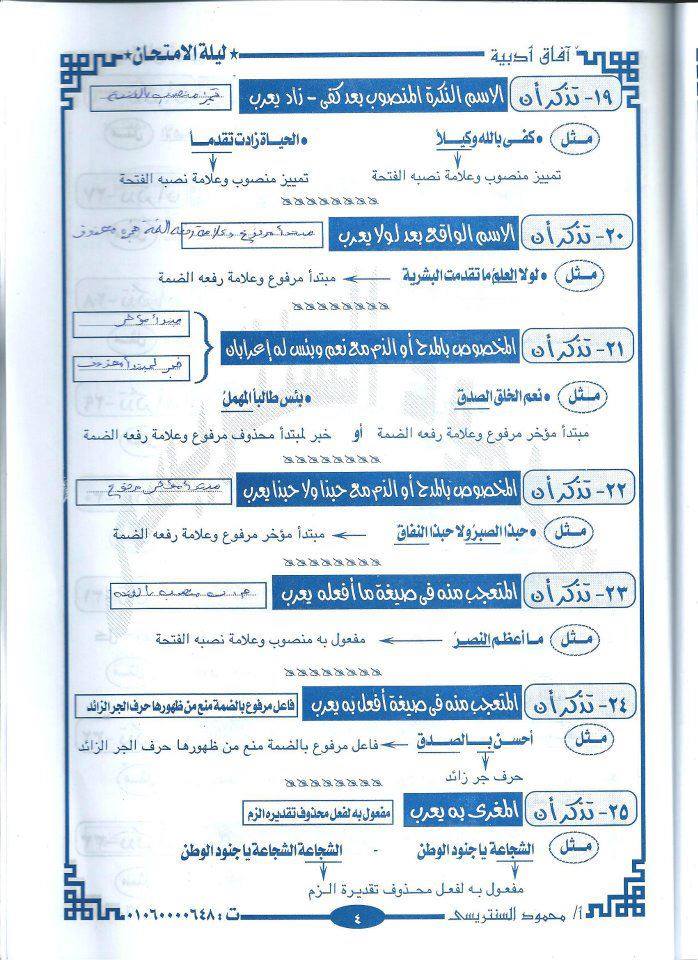 آفاق أدبية
★ ليلة الامتحان ★
١٩- تذكر أن الاسم النكرة المنصوب بعد كفى - زاد يعرب تميز منصوب بالفتحة
مثل • كفى بالله وكيلاً • الحياة زادت تقدمـاً
تمييز منصوب وعلامة نصبه الفتحة تمييز منصوب وعلامة نصبه الفتحة
٢٠- تذكر أن الاسم الواقع بعد لولا يعرب مبتدأ مرفوع وعلامة رفعه الضمة خبره محذوف
مثل • لولا العلمُ ما تقدمت البشرية مبتدأ مرفوع وعلامة رفعه الضمة
٢١- تذكر أن المخصوص بالمدح أو الذم مع نعم وبئس له إعرابان
مبتدأ مؤخر
خبر لمبتدأ محذوف
مثل • نعم الخلق الصدق • بئس طالباً المهملُ
مبتدأ مؤخر مرفوع وعلامة رفعه الضمة أو خبر لمبتدأ محذوف مرفوع وعلامة رفعه الضمة
٢٢- تذكر أن المخصوص بالمدح أو الذم مع حبذا ولا حبذا يعرب مبتدأ مؤخر مرفوع
مثل • حبذا الصبرُ ولا حبذا النفاق مبتدأ مؤخر مرفوع وعلامة رفعه الضمة
٢٣- تذكر أن المتعجب منه فى صيغة ما أفعله يعرب منصوب بالفتحة
مثل • ما أعظم النصرُ مفعول به منصوب وعلامة نصبه الفتحة
٢٤- تذكر أن المتعجب منه فى صيغة أفعل به يعرب فاعل مرفوع بالضمة منع من ظهورها حرف الجر الزائد
مثل أحسن بـالصـدق فاعل مرفوع بالضمة منع من ظهورها حرف الجر الزائد
حرف جر زائد
٢٥- تذكر أن المغرى به يعرب مفعول به لفعل محذوف تقديره الزم
مثل الشجاعة يا جنود الوطن - الشجاعة الشجاعة يا جنود الوطن
مفعول به لفعل محذوف تقديرة الزم
أ/ محمود السنتريسى
٤
ت : ٠١٠٦٠٠٠٠٦٤٨